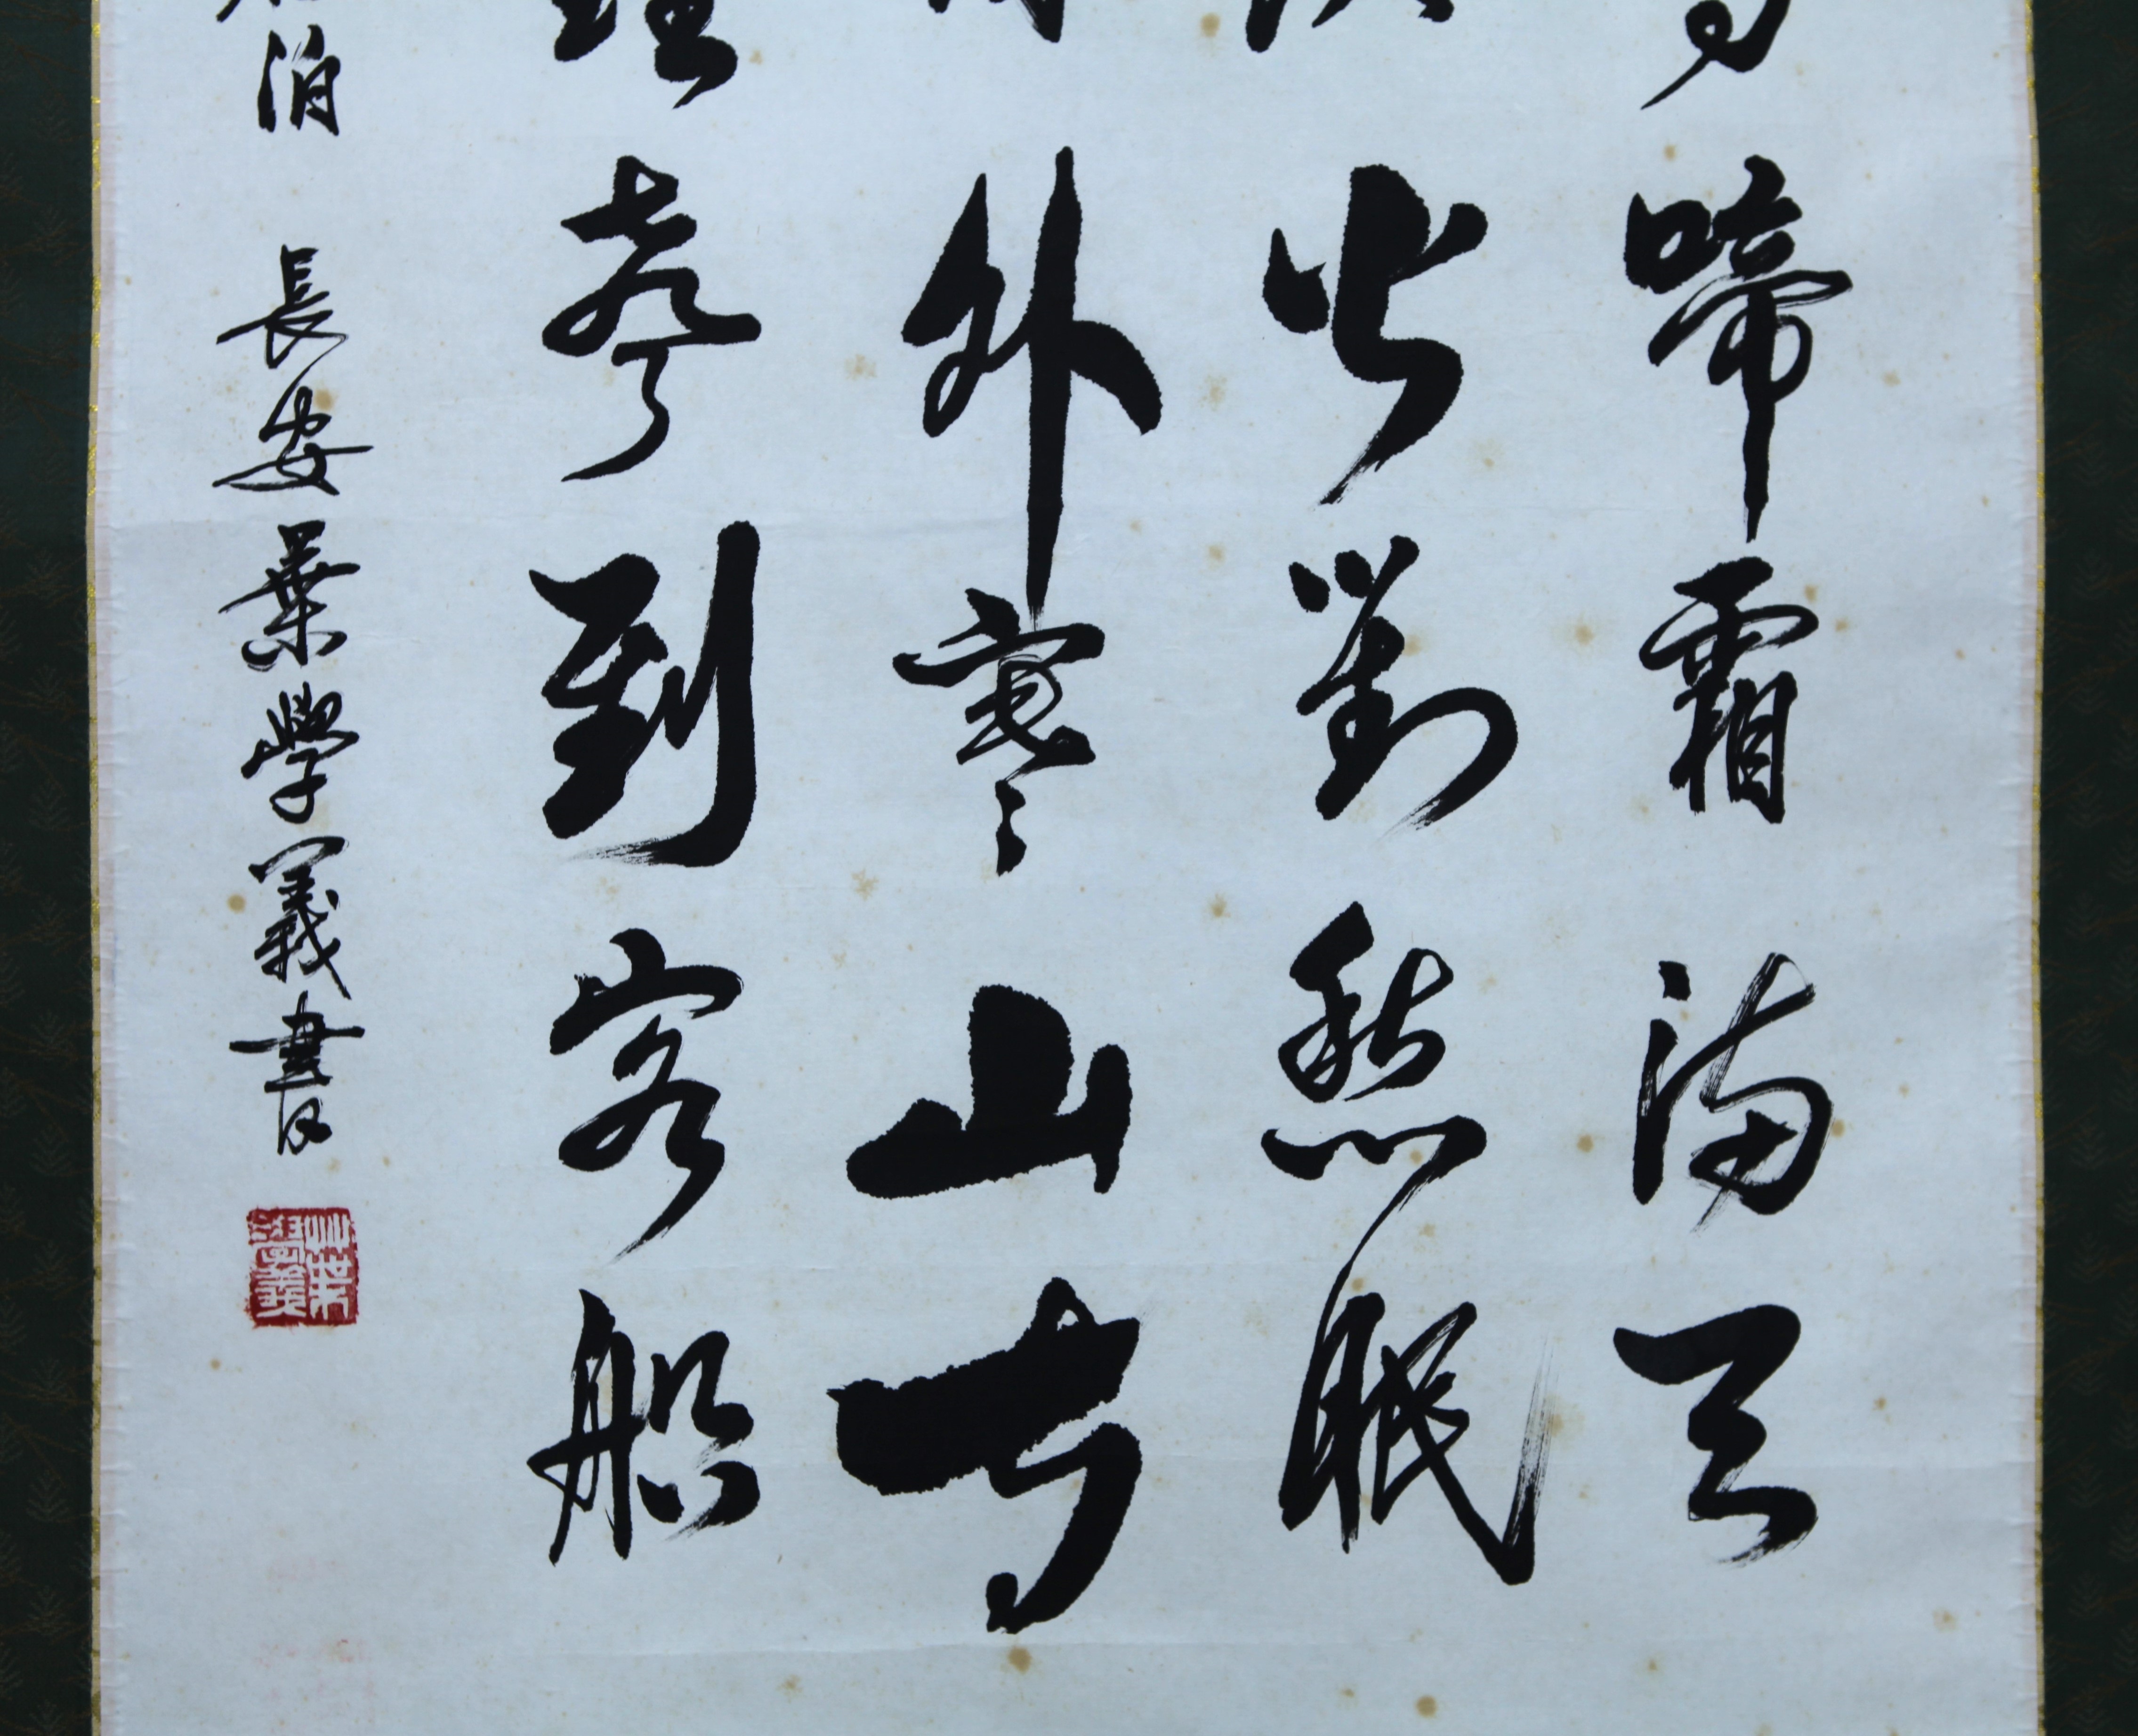 啼霜滿天
火對愁眠
外寒山寺
聲到客船
泊 長安葉學義書
葉學義